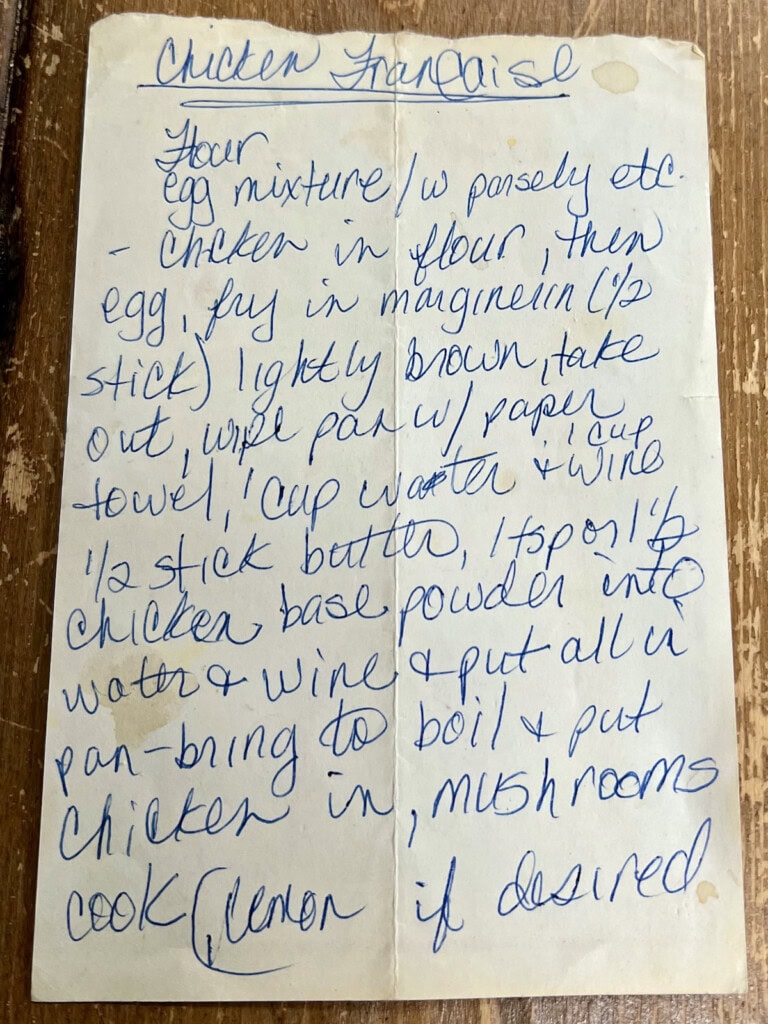 Chicken Française
Flour
egg mixture/w parsely etc.
- chicken in flour, then
egg, fry in marginerin (1/2
stick) lightly brown, take
out, wipe pan w/ paper
towel, 1 cup water + 1 cup wine
1/2 stick butter, 1 tsp or 1 1/2
chicken base powder into
water & wine & put all in
pan-bring to boil & put
chicken in, mushrooms
cook (, lemon if desired